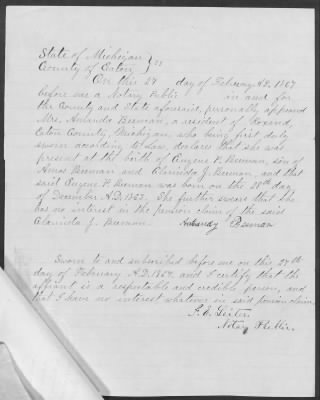 State of Michigan } ss
County of Eaton
On this 27 day of February A.D. 1867
before me a Notary Public in and for
the County and State aforesaid, personally appeared
Mrs. Amanda Beeman, a resident of
Eaton County, Michigan, who being first duly
sworn according to Law, declares that she was
present at the birth of Eugene P. Beeman, son of
Amos Beeman and Clarinda J. Beeman, and that
said Eugene P. Beeman was born on the 28th day
of December A.D. 1853. She further swears that she
has no interest in the pension claim of the said
Clarinda J. Beeman. Beeman
Sworn to and subscribed before me on this 27th
day of February A.D. 1867, and I certify that the
affiant is a respectable and credible person, and
that I have no interest whatever in said pension claim.
Notary Public.